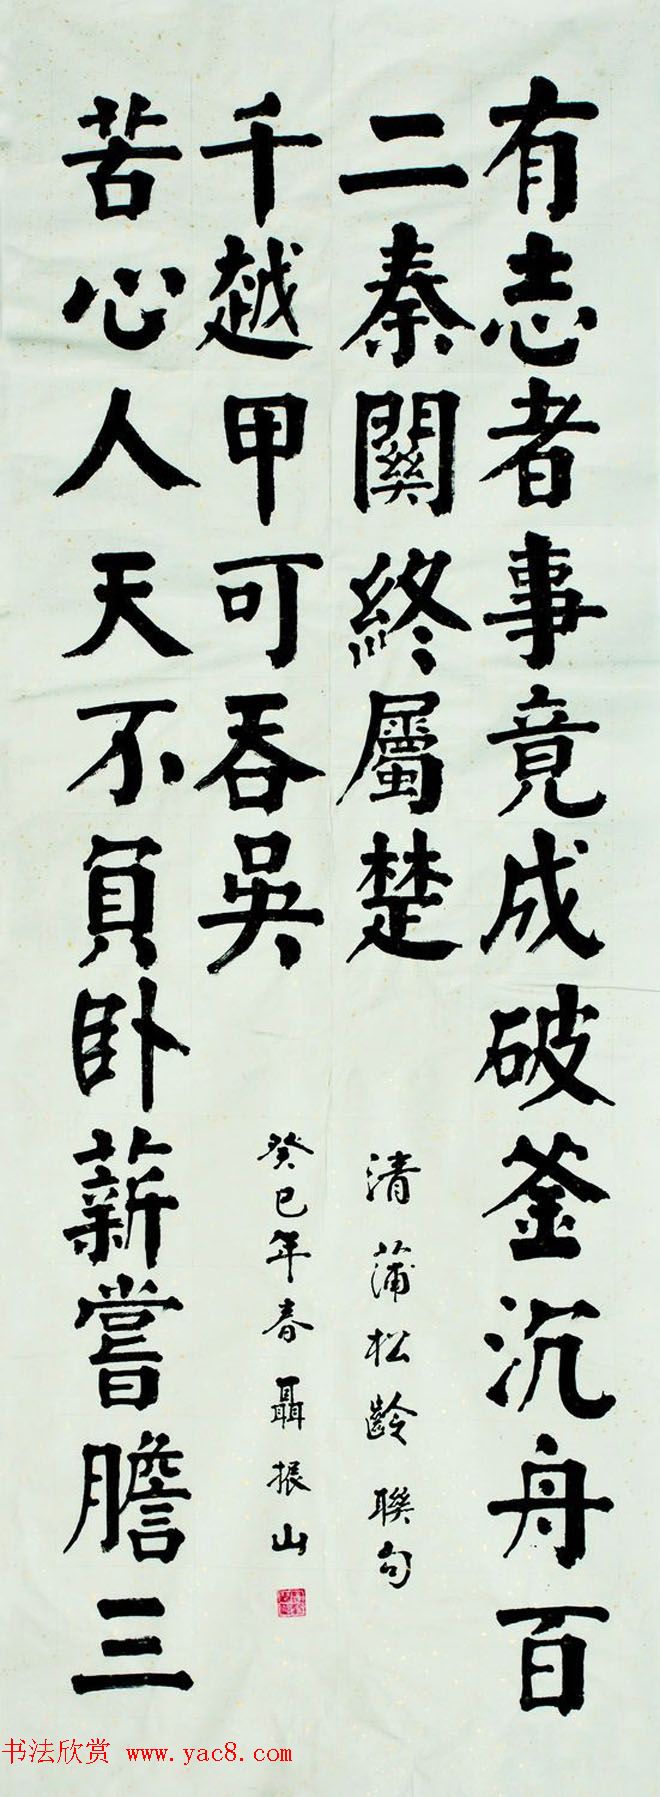 有志者事竟成破釜沉舟百
二秦關終屬楚
苦心人天不負卧薪嘗膽三
千越甲可吞吳
清蒲松齡聯句
癸巳年春聶振山
书法欣赏 www.yac8.com